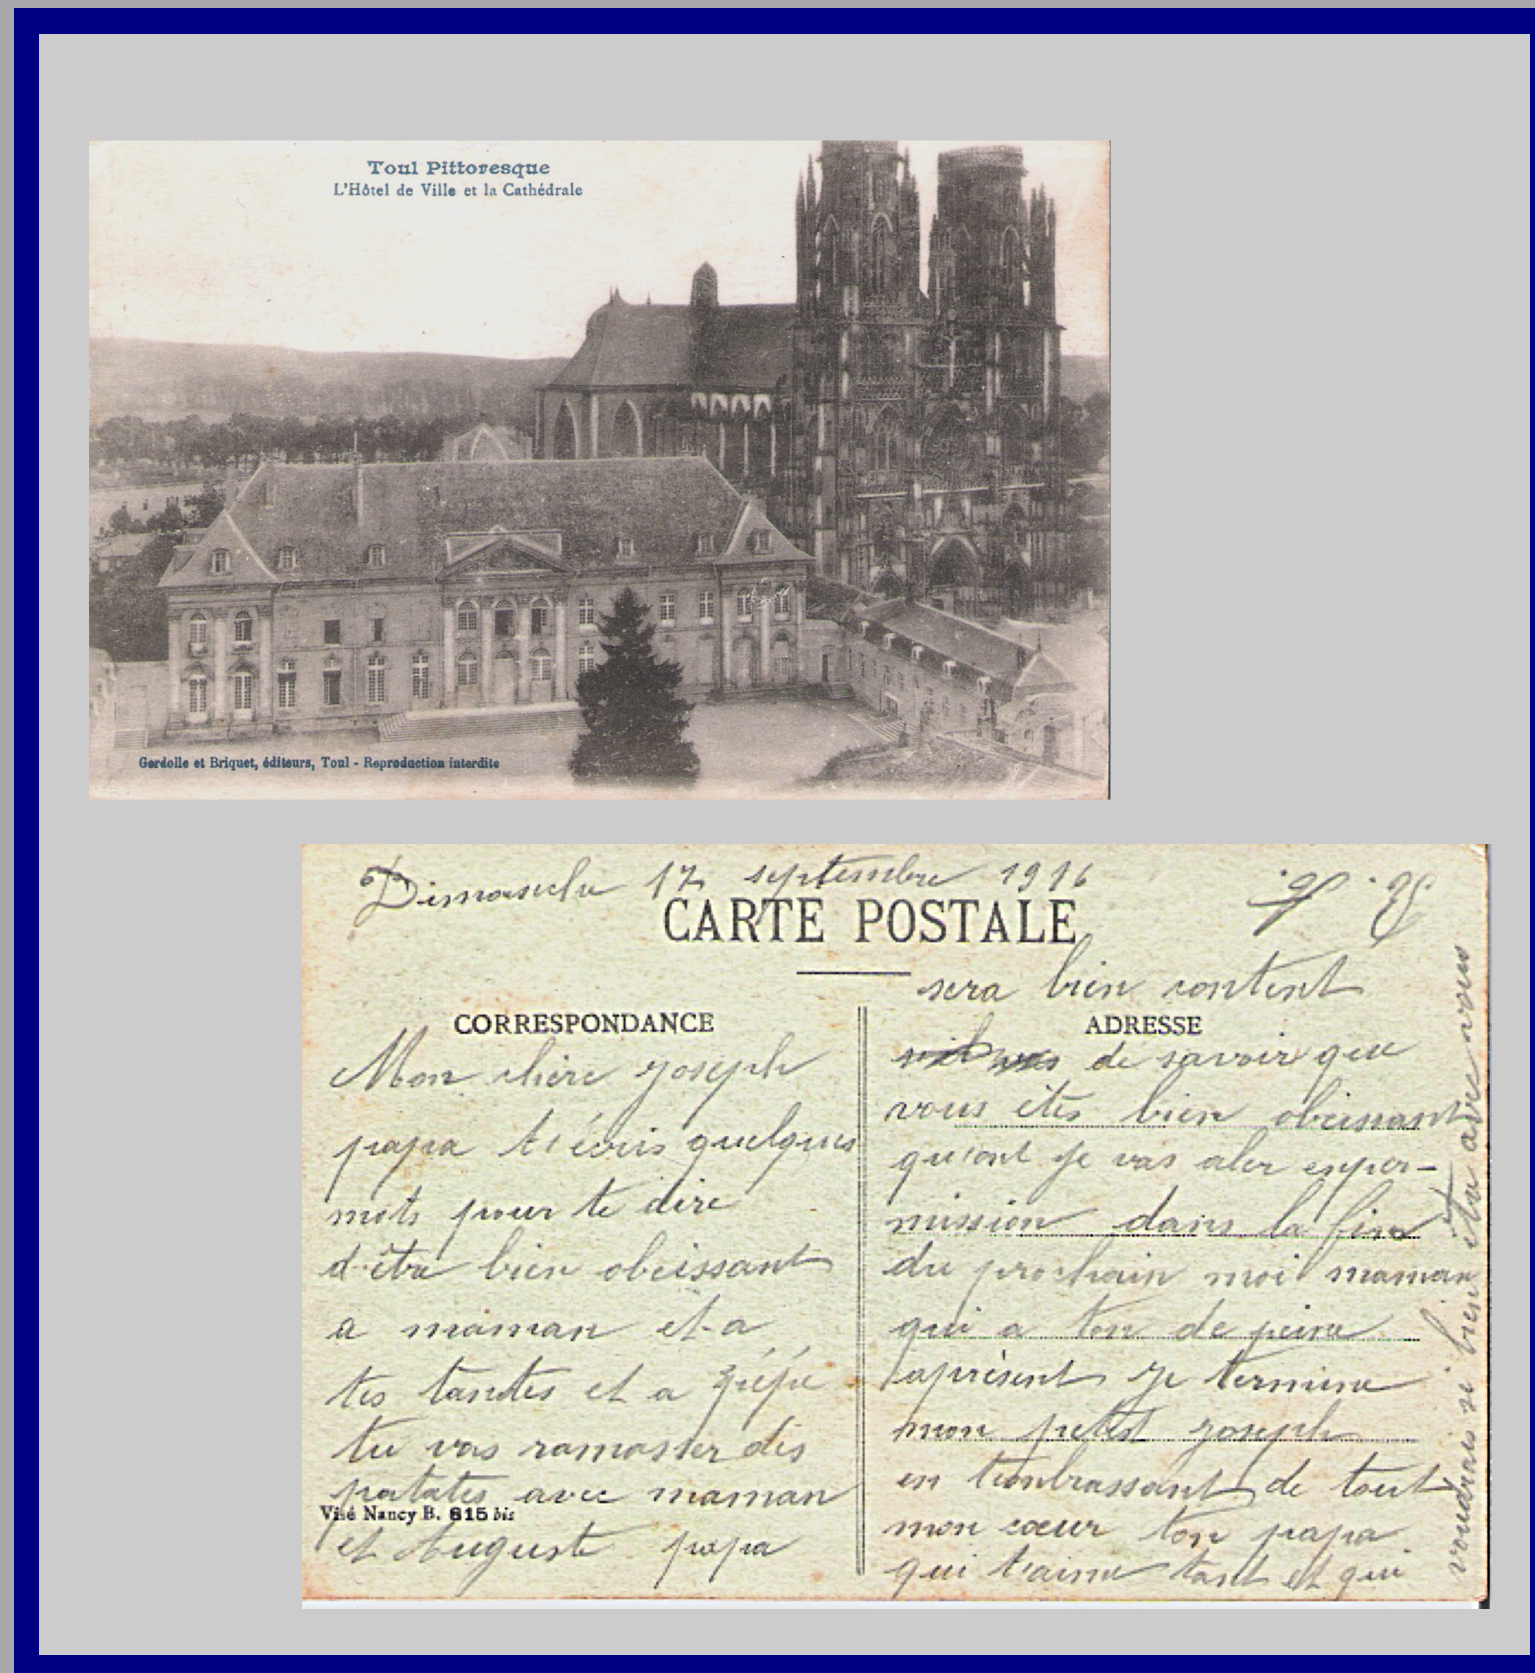 Toul Pittoresque
L'Hôtel de Ville et la Cathédrale
Gerdolle et Briquet, éditeurs, Toul - Reproduction interdite
Dimanche 17 septembre 1916
CARTE POSTALE
CORRESPONDANCE
Mon chère joseph
papa t'écris quelques
mots pour te dire
d'être bien obeissant
a maman et a
tes tantes et a pépé
tu vas ramasser des
patates avec maman
Visé Nancy B. 815 bis
et Auguste papa
sera bien content
ADRESSE
de savoir que
vous êtes bien obeissant
qu'ant je vas aler enper-
mission dans la fin
du prochain moi maman
qui a ton de peine
aprèsent je termine
mon petit joseph
en t'enbrassant de tout
mon cœur ton papa
qui t'aime tant et qui
voudrais si bien être avec vous